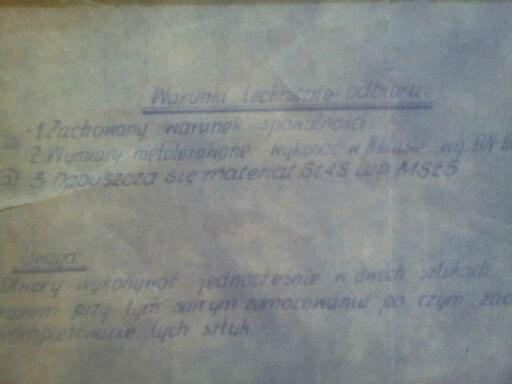 Warunki techniczne odbioru
1. Zachowany warunek spawalności.
2. Wymiary nietolerowane wykonać w klasie wg. BN
3. Dopuszcza się materiał St4S lub MSt5
Uwaga
Otwory wykonywać jednocześnie w dwóch sztukach
razem przy tym samym zamocowaniu po czym
kompletowanie tych sztuk.